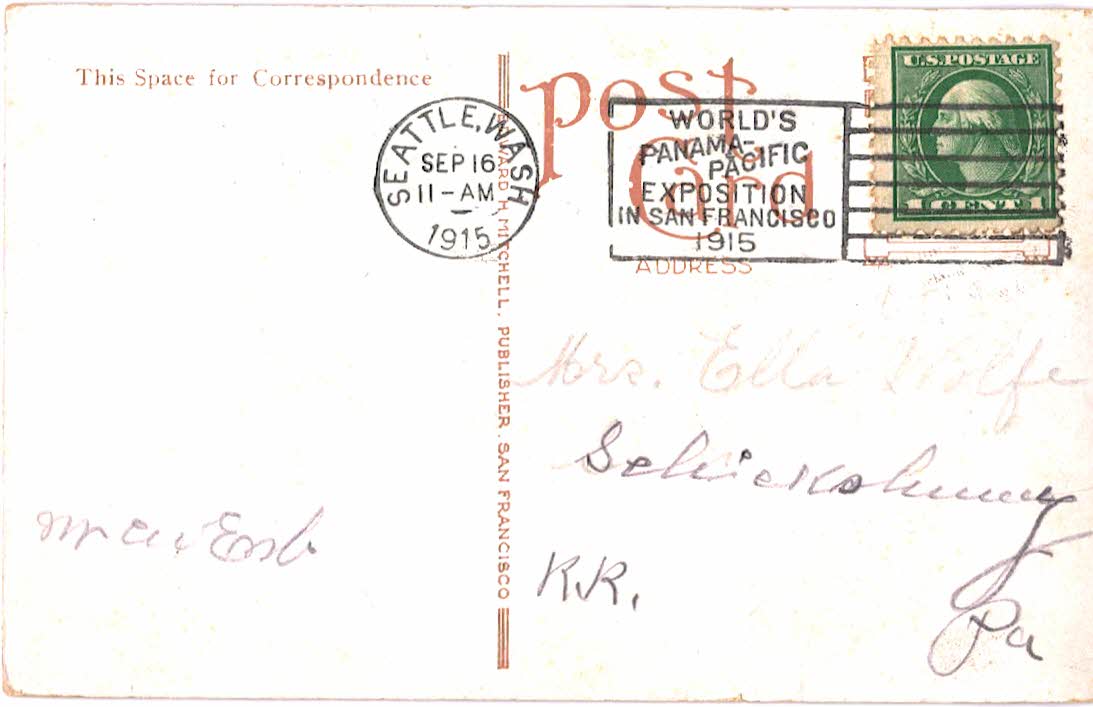 This Space for Correspondence
Post
Card
ADDRESS
SEATTLE, WASH
SEP 16
11-AM
1915
WORLD'S
PANAMA-
PACIFIC
EXPOSITION
IN SAN FRANCISCO
1915
U.S. POSTAGE
1 CENT 1
EDWARD H. MITCHELL, PUBLISHER, SAN FRANCISCO
Mrs. Ella Wolfe
Schickshinny
R.R.
Pa